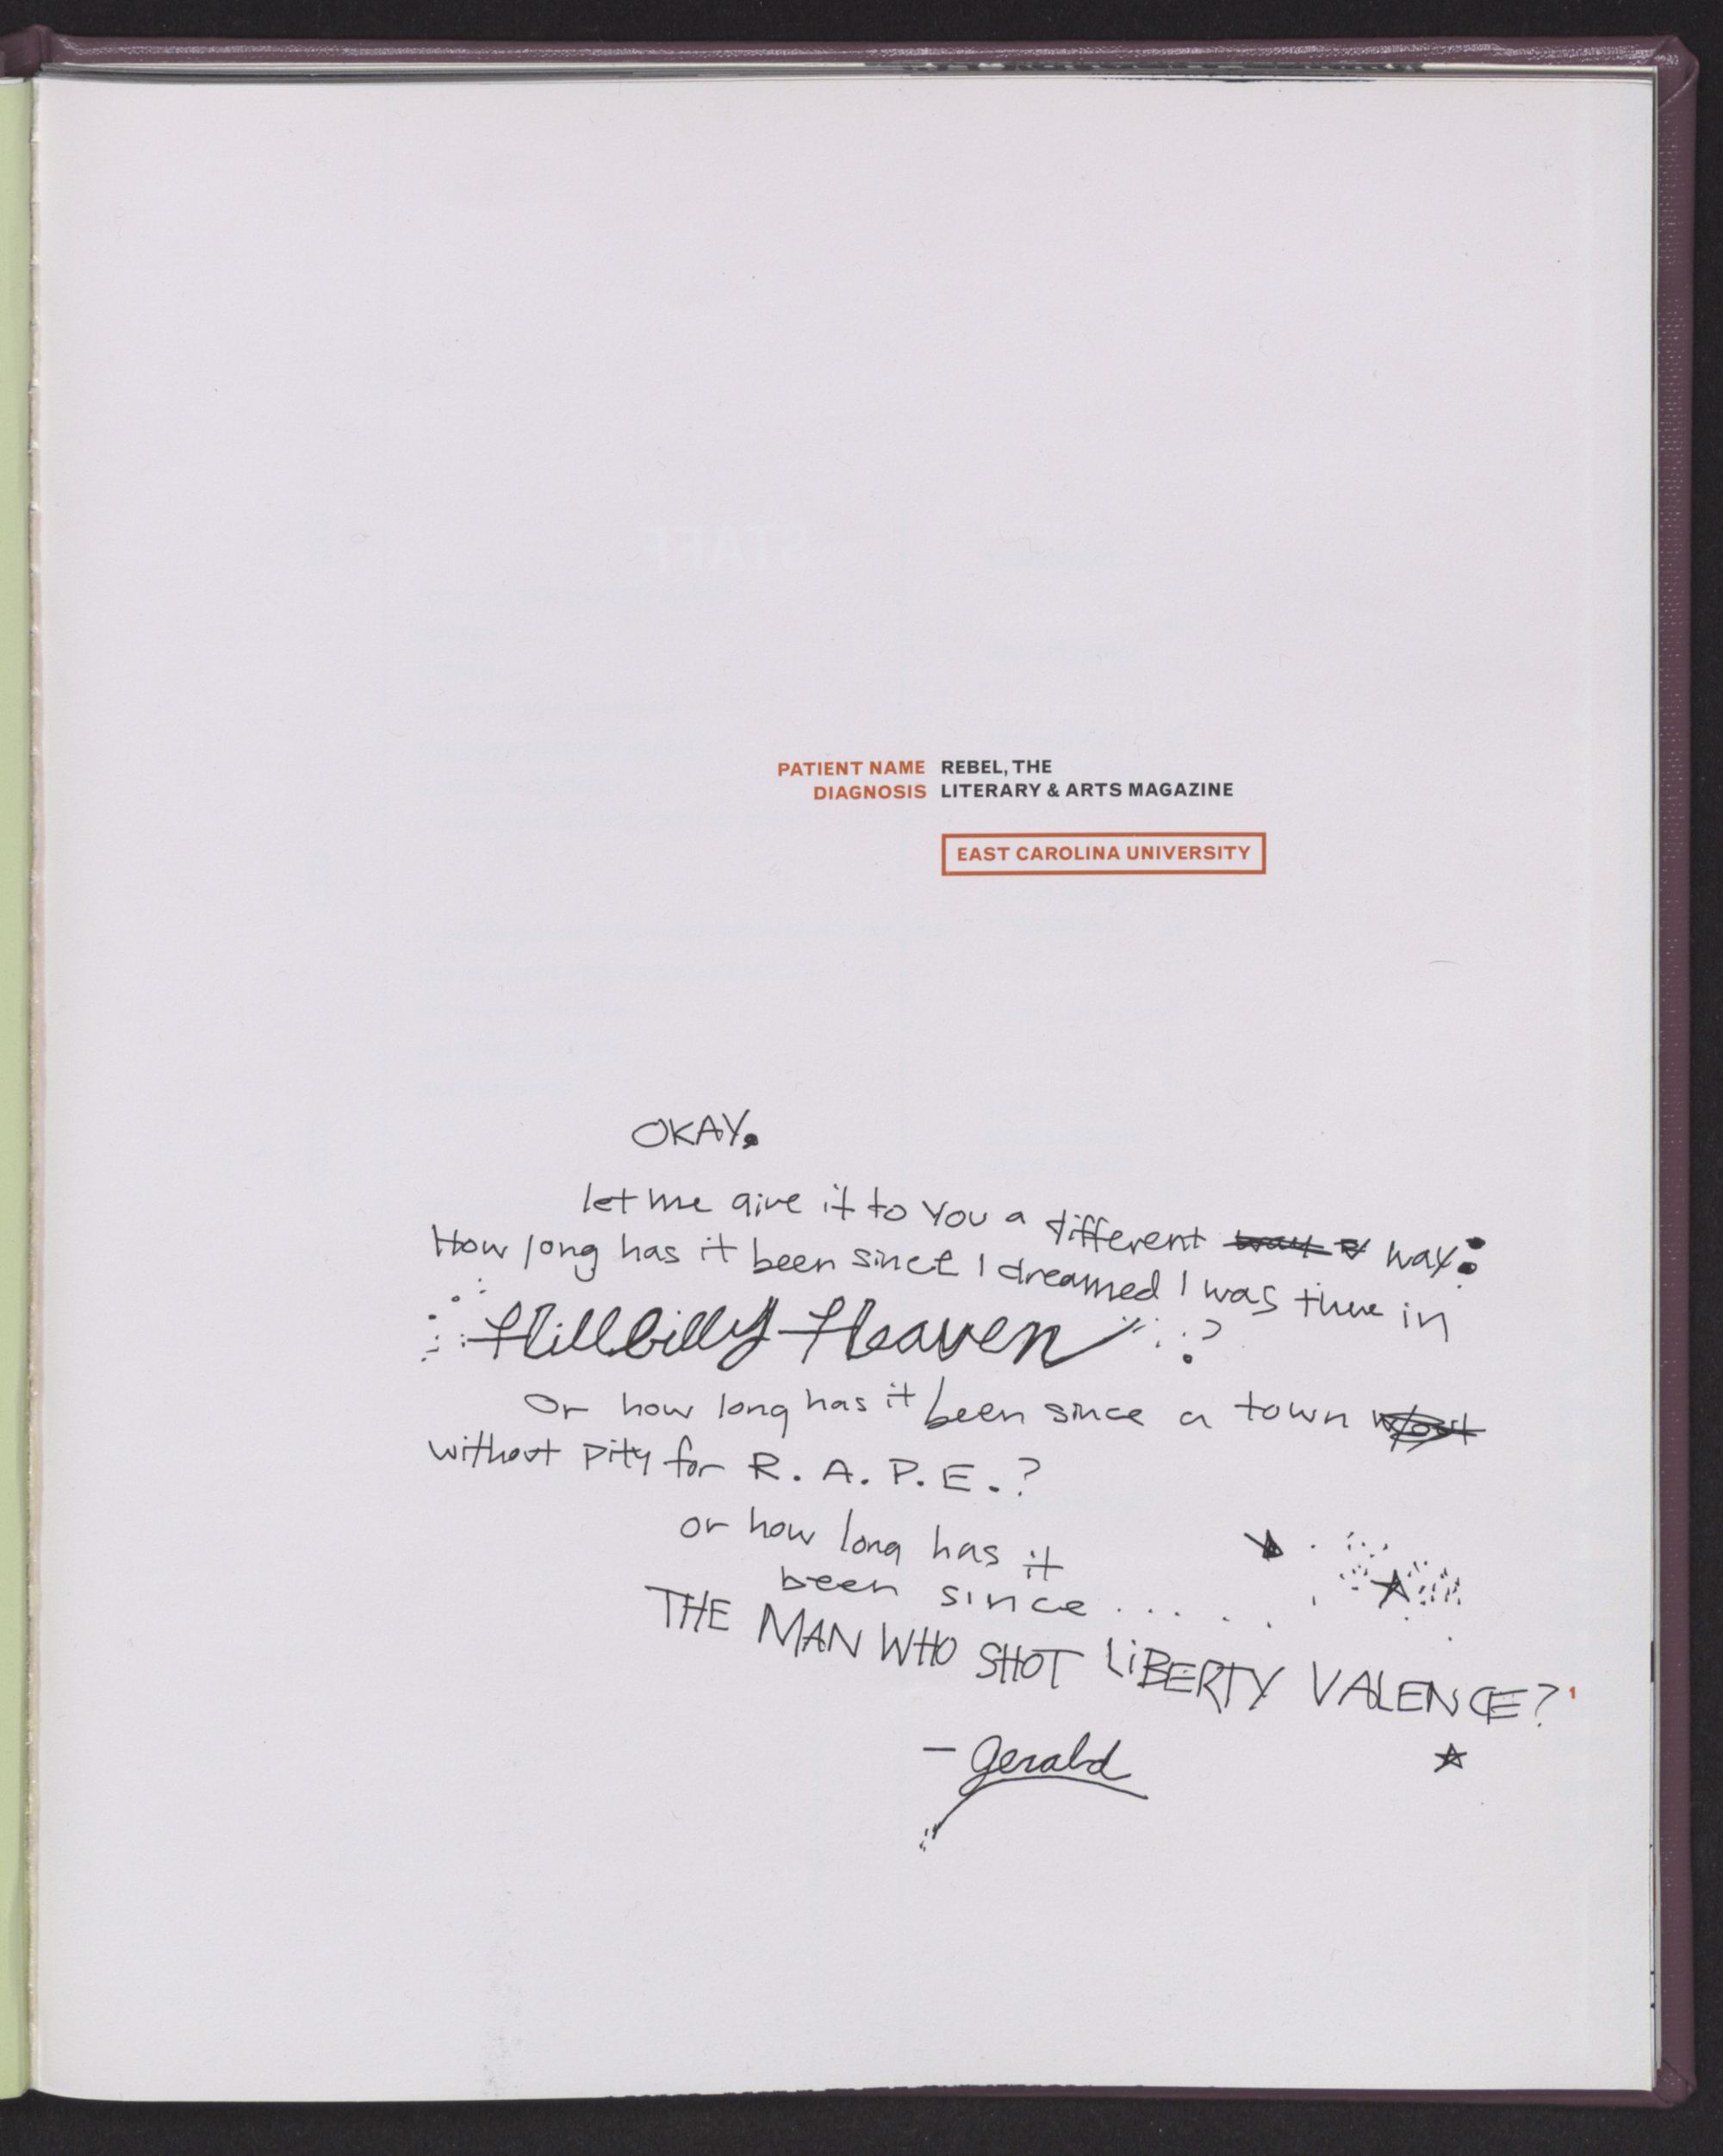 PATIENT NAME REBEL, THE
DIAGNOSIS LITERARY & ARTS MAGAZINE
EAST CAROLINA UNIVERSITY
OKAY.
let me give it to You a different way:
How long has it been since I dreamed I was there in
Hillbilly Heaven?
Or how long has it been since a town
without pity for R. A. P. E.?
or how long has it
been since.....
THE MAN WHO SHOT LIBERTY VALENCE? 1
– Gerald